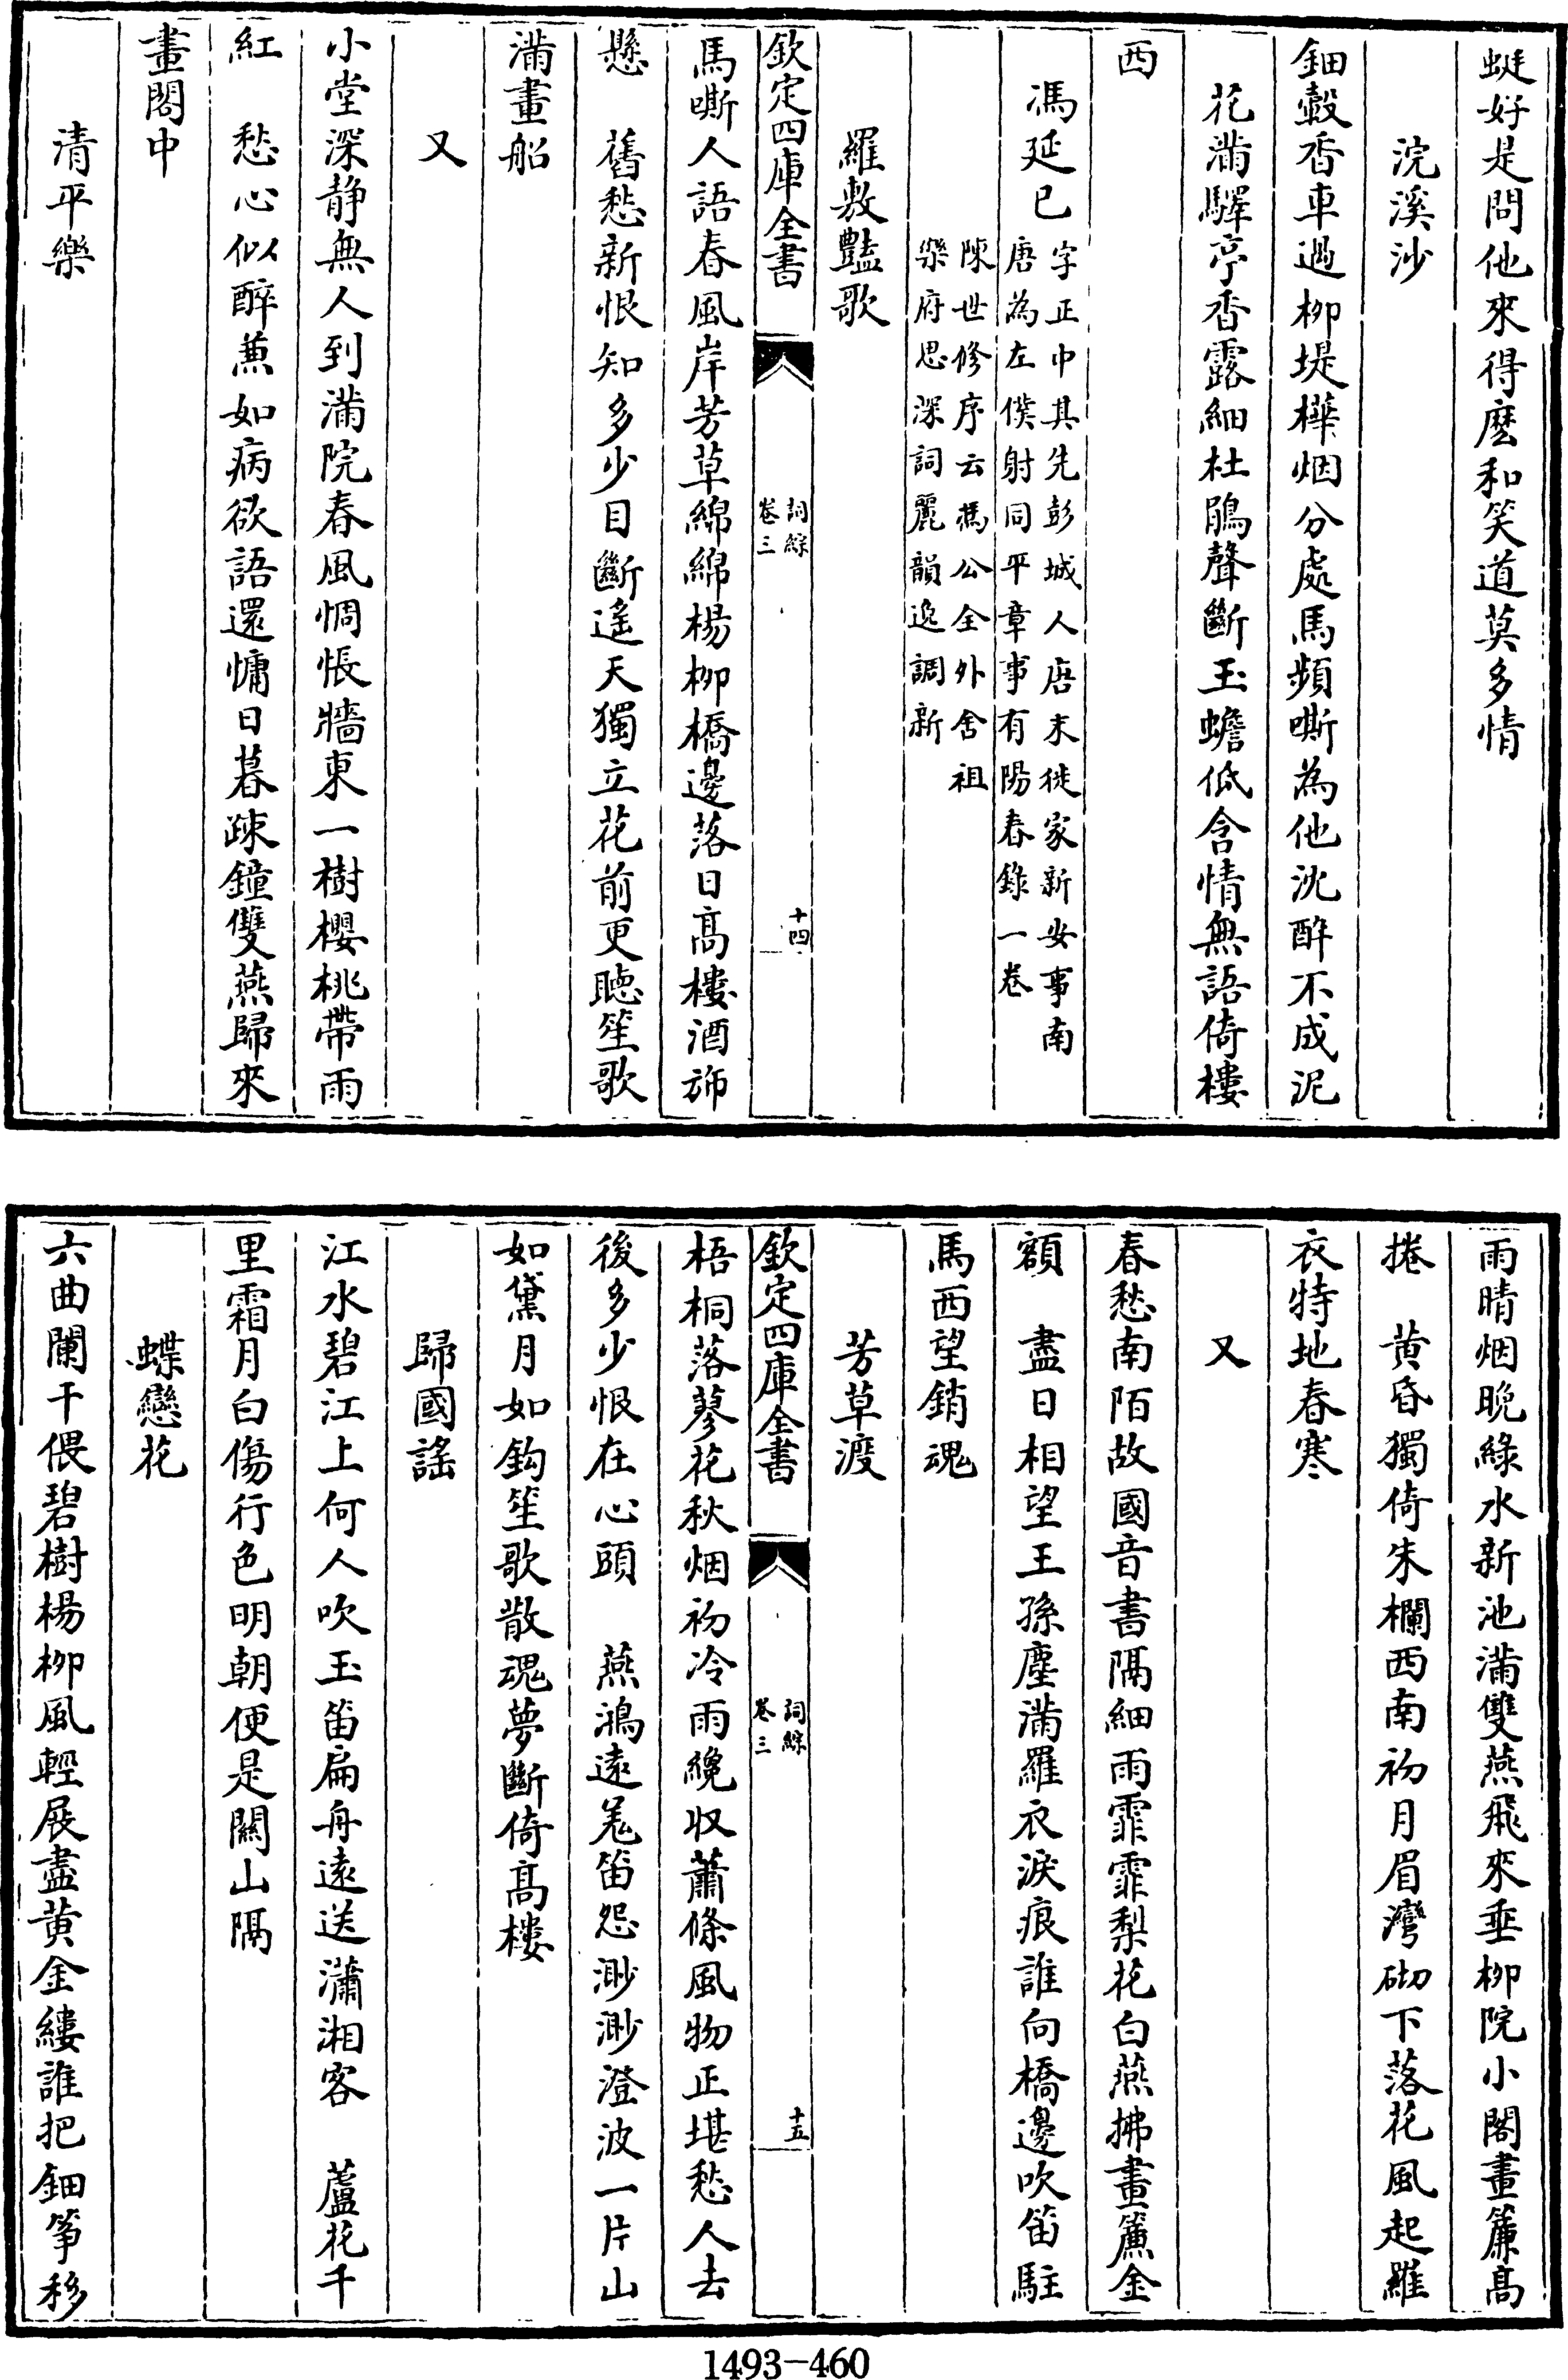 蜓好是問他來得麽和笑道莫多情
浣溪沙
鈿轂香車過柳堤樺烟分處馬頻嘶為他沈醉不成泥
花滿驛亭香露細杜鵑聲斷玉蟾低含情無語倚樓
西
馮延巳
字正中其先彭城人唐末徙家新安事南
唐為左僕射同平章事有陽春錄一卷
陳世修序云馮公全外舍祖
樂府思深詞麗韻逸調新
羅敷豔歌
欽定四庫全書
詞綜
卷三
十四
馬嘶人語春風岸芳草綿綿楊柳橋邊落日高樓酒斾
懸　舊愁新恨知多少目斷遙天獨立花前更聽笙歌
滿畫船
又
小堂深静無人到滿院春風惆悵牆東一樹櫻桃帶雨
紅　愁心似醉蒹如病欲語還慵日暮疎鐘雙燕歸來
畫閣中
清平樂
雨晴烟晚綠水新池滿雙燕飛來垂柳院小閣畫簾高
捲　黄昏獨倚朱欄西南初月眉灣砌下落花風起羅
衣特地春寒
又
春愁南陌故國音書隔細雨霏霏梨花白燕拂畫簾金
額　盡日相望王孫塵滿羅衣淚痕誰向橋邊吹笛駐
馬西望銷魂
芳草渡
欽定四庫全書
詞綜
卷三
十五
梧桐落蓼花秋烟初冷雨纔收蕭條風物正堪愁人去
後多少恨在心頭　燕鴻遠羌笛怨渺渺澄波一片山
如黛月如鈎笙歌散魂夢斷倚高樓
歸國謠
江水碧江上何人吹玉笛扁舟遠送瀟湘客　蘆花千
里霜月白傷行色明朝便是關山隔
蝶戀花
六曲闌干偎碧樹楊柳風輕展盡黄金縷誰把鈿筝移
1493-460